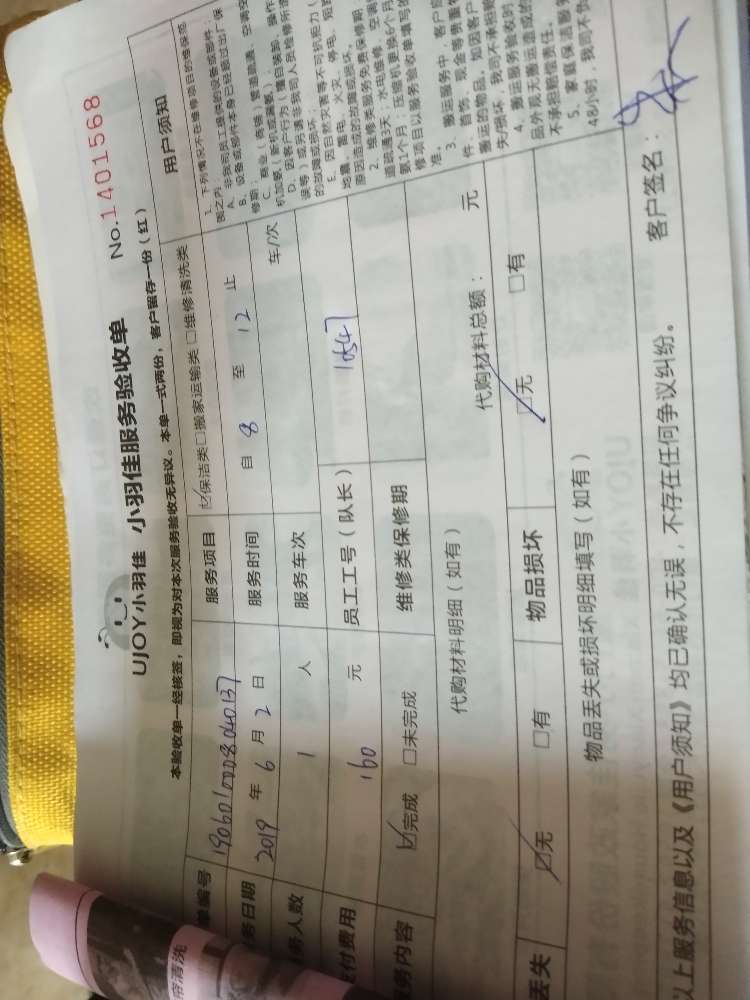 UJOY小羽佳 小羽佳服务验收单 No.1401568
本验收单一经核签，即视为对本次服务验收无异议。本单一式两份，客户留存一份（红）
单编号 服务项目 保洁类 □搬家运输类 □维修清洗类 用户须知
务日期 2019 年 6 月 2 日 服务时间 自 8 至 12 止
务人数 1 人 服务车次 车/次
付费用 160 元 员工工号（队长） 10547
务内容 完成 □未完成 维修类保修期
代购材料明细（如有） 代购材料总额： 元
丢失 无 □有 物品损坏 无 □有
物品丢失或损坏明细填写（如有）
以上服务信息以及《用户须知》均已确认无误，不存在任何争议纠纷。 客户签名：
1、下列情况不在维修项目的维保范
围之内：
A、非我司员工提供的设备或部件；
B、设备或部件本身已经超过出厂保
修期；
的故障或损坏；
E、因自然灾害等不可抗拒力（
地震、雷电、火灾、停电、短路
原因造成的故障或损坏。
2、维修类服务免费保修期：
道疏通3天；水电维修、空调
氨1个月；压缩机更换6个月
修项目以服务验收单填写的
准。
3、搬运服务中，客户应
件、首饰、现金等贵重物
搬运的物品，如因客户
失/损坏，我司不承担赔
4、搬运服务验收时
品外观无搬运造成的
不承担赔偿责任。
5、家庭保洁服务
48小时，我司不负
帘清洗